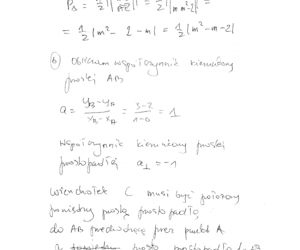 P_Δ = 1/2 | | = 1/2 | | =
= 1/2 |m² - 2 - m| = 1/2 |m² - m - 2|
ⓑ Obliczam współczynnik kierunkowy
prostej AB
a = (y_B - y_A)/(x_B - x_A) = (3-2)/(1-0) = 1
współczynnik kierunkowy prostej
prostopadłej a⊥ = -1
wierzchołek C musi być położony
pomiędzy prostą prostopadłą
do AB przechodzącą przez punkt A
a prostą prostopadłą